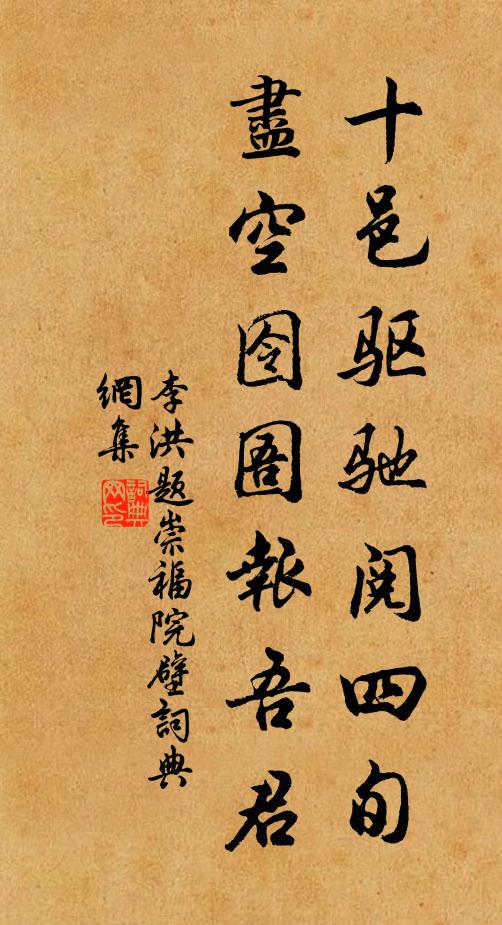 十邑驱驰阅四旬
盡空囹圄報吾君
李洪题崇福院壁詞典
網集
詞典
网印